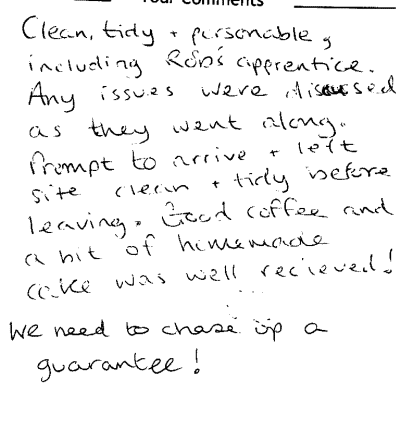 Your Comments
Clean, tidy + personable,
including Rob's apprentice.
Any issues were discussed
as they went along.
Prompt to arrive + left
site clean + tidy before
leaving. Good coffee and
a bit of homemade
cake was well recieved!
We need to chase up a
guarantee!